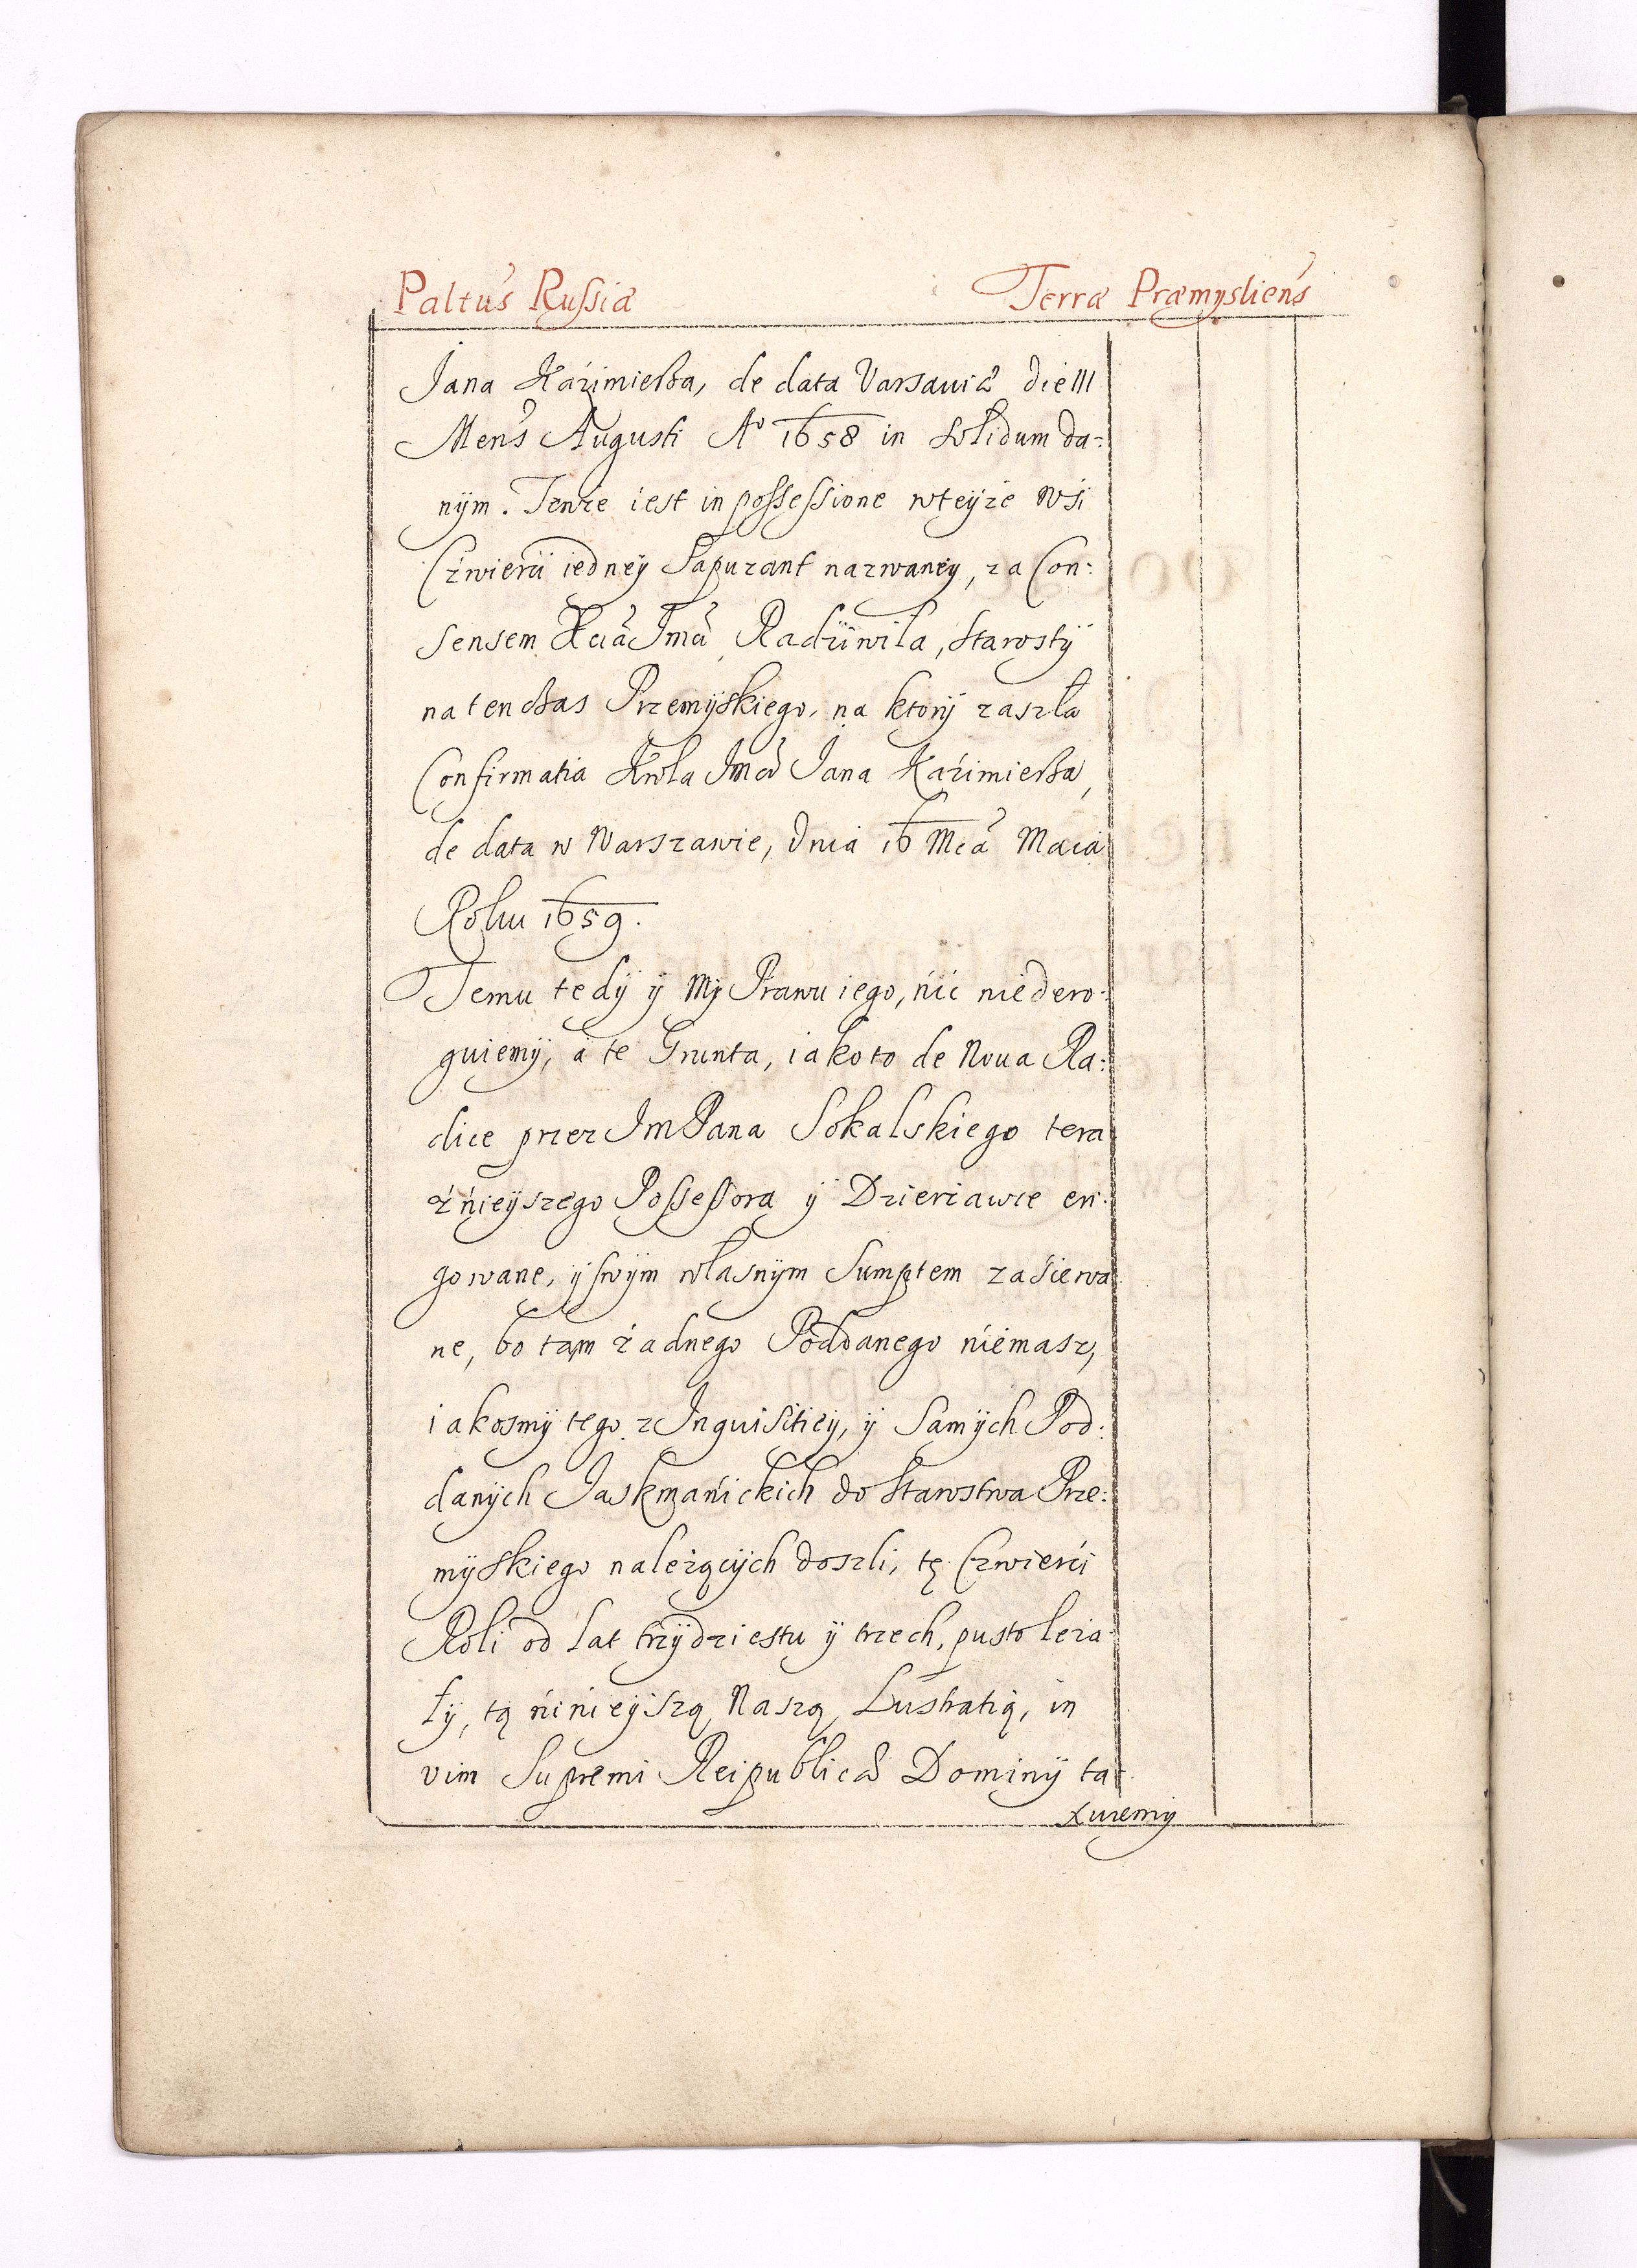 Paltus Russiæ Terræ Præmysliens
Jana Kaźimierßa, de data Varsaviæ die III
Mens Augusti Aº 1658 in Solidum da:
nÿm. Tenże iest in possessione wteÿże wśi
Czwierći iedneÿ Sapurant nazwaneÿ, za Con:
sensem Xcia Jmci Radźiwiła, Starostÿ
natenczas Przemÿskiego, na ktorÿ zaszła
Confirmatia Krola Jmci Jana Kaźimierßa,
de data w Warszawie, dnia 16 Mca Maia
Roku 1659.
Temu tedÿ ÿ Mÿ Prawu iego, nic niedero:
guiemÿ, a te Grunta, iakoto de Nova Ra:
dice przez Jm Pana Sokalskiego tera
źnieÿszego Possessora ÿ Dzierżawce eri:
gowane, ÿ swÿm własnÿm Sumptem zaśiewa
ne, bo tam żadnego Poddanego niemasz,
iakosmÿ tego z Inquisitieÿ, ÿ Samÿch Pod:
danÿch Jaskmanickich do Starostwa Prze:
mÿskiego należącÿch doszli, tę Czwierći
Roli od lat trzÿdziestu ÿ trzech, pusto leża
łÿ, tą ninieÿszą Naszą Lustratią, in
vim Supremi Reipublicæ Dominÿ ta
xuiemÿ